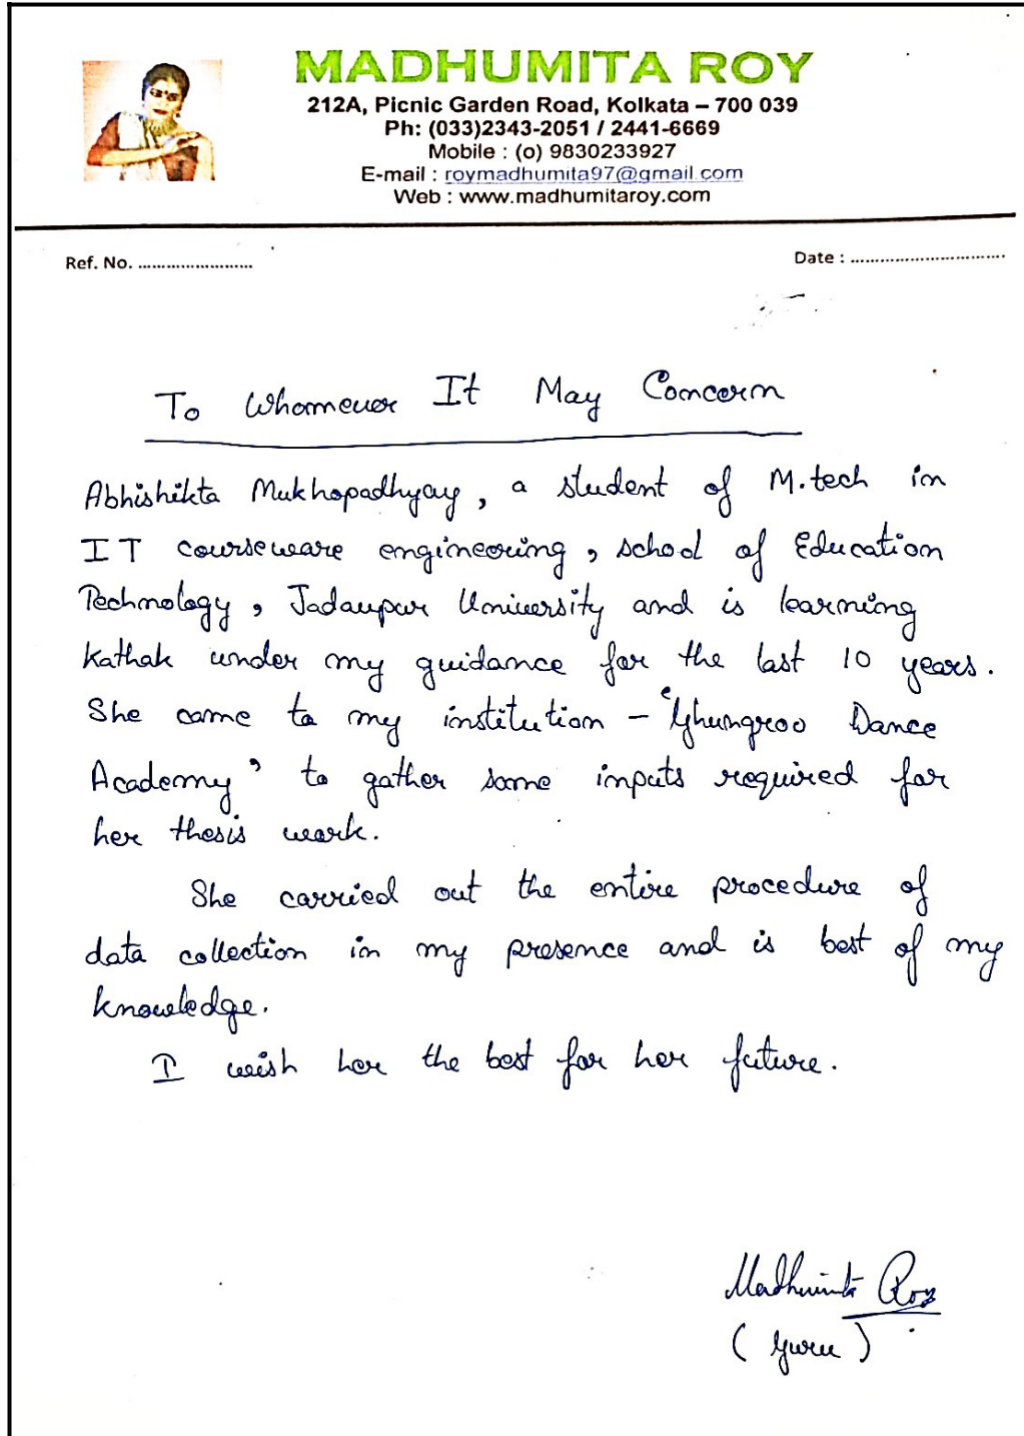 MADHUMITA ROY
212A, Picnic Garden Road, Kolkata – 700 039
Ph: (033)2343-2051 / 2441-6669
Mobile : (o) 9830233927
E-mail : roymadhumita97@gmail.com
Web : www.madhumitaroy.com
Ref. No. ........................
Date : ................................
To Whomever It May Concern
Abhishikta Mukhopadhyay, a student of M.tech in
IT courseware engineering, school of Education
Technology, Jadavpur University and is learning
Kathak under my guidance for the last 10 years.
She came to my institution – 'Ghungroo Dance
Academy' to gather some inputs required for
her thesis work.
She carried out the entire procedure of
data collection in my presence and is best of my
knowledge.
I wish her the best for her future.
Madhumita Roy
( Guru )